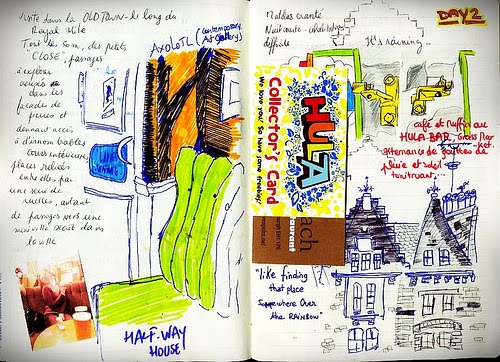 VISITE dans la OLD TOWN - le long du
Royal Mile
Tout les 50m, des petits
"CLOSE", passages
à explorer
dans les
façades de
pierres et
donnant accès
à d'innombrables
cours intérieures,
places reliées
entre elles par
une série de
ruelles, autant
de passages vers une
mini ville dans
la ville
AXOLOTL (contemporary
Art Gallery)
HALF-WAY
HOUSE
DAY 2
difficile
It's raining...
HULA
Collector's Card
We love you! So have some freebies!
"like finding
that place
Somewhere Over
the RAINBOW"
café et Muffin au
HULA BAR, Grass Mar
-ket.
Alternance de gouttes de
pluie et soleil
tonitruant...